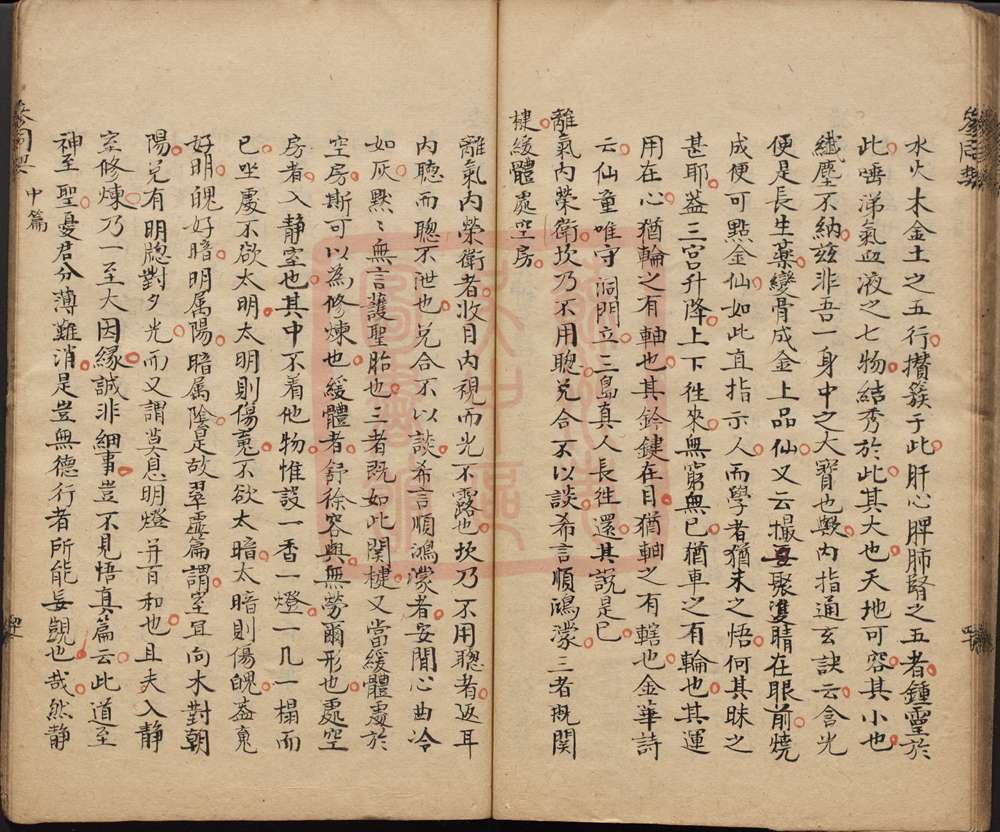 水火木金土之五行攅簇于此肝心脾肺腎之五者鍾靈於
此唾涕氣血液之七物結秀於此其大也天地可容其小也
纖塵不納兹非吾一身中之大寶也歟内指通玄訣云含光
便是長生藥變骨成金上品仙又云撮聚雙睛在眼前燒
成便可點金仙如此直指示人而學者猶未之悟何其昧之
甚耶盖三宫升降上下徃來無窮無已猶車之有輪也其運
用在心猶輪之有軸也其鈐鍵在目猶軸之有轄也金華詩
云仙童唯守洞門立三島真人長徃還其説是已
離氣内榮衛坎乃不用聦兑合不以談希言順鴻濛三者既関
楗緩體處空房
離氣内榮衛者收目内視而光不露也坎乃不用聦者返耳
内聦而聦不泄也兑合不以談希言順鴻濛者安閒心曲冷
如灰黙〻無言護聖胎也三者既如此関楗又當緩體處於
空房斯可以為修煉也緩體者舒徐容與無勞爾形也處空
房者入静室也其中不着他物惟設一香一燈一几一榻而
已坐處不欲太明太明則傷䰟不欲太暗太暗則傷魄盖䰟
好明魄好暗明属陽暗属隂是故翠虚篇謂室宜向木對朝
陽兑有明牎對夕光而又謂莫息明燈并百和也且夫入静
室修煉乃一至大因緣誠非細事豈不見悟真篇云此道至
神至聖憂君分薄難消是豈無德行者所能妄覬也哉然静
中篇